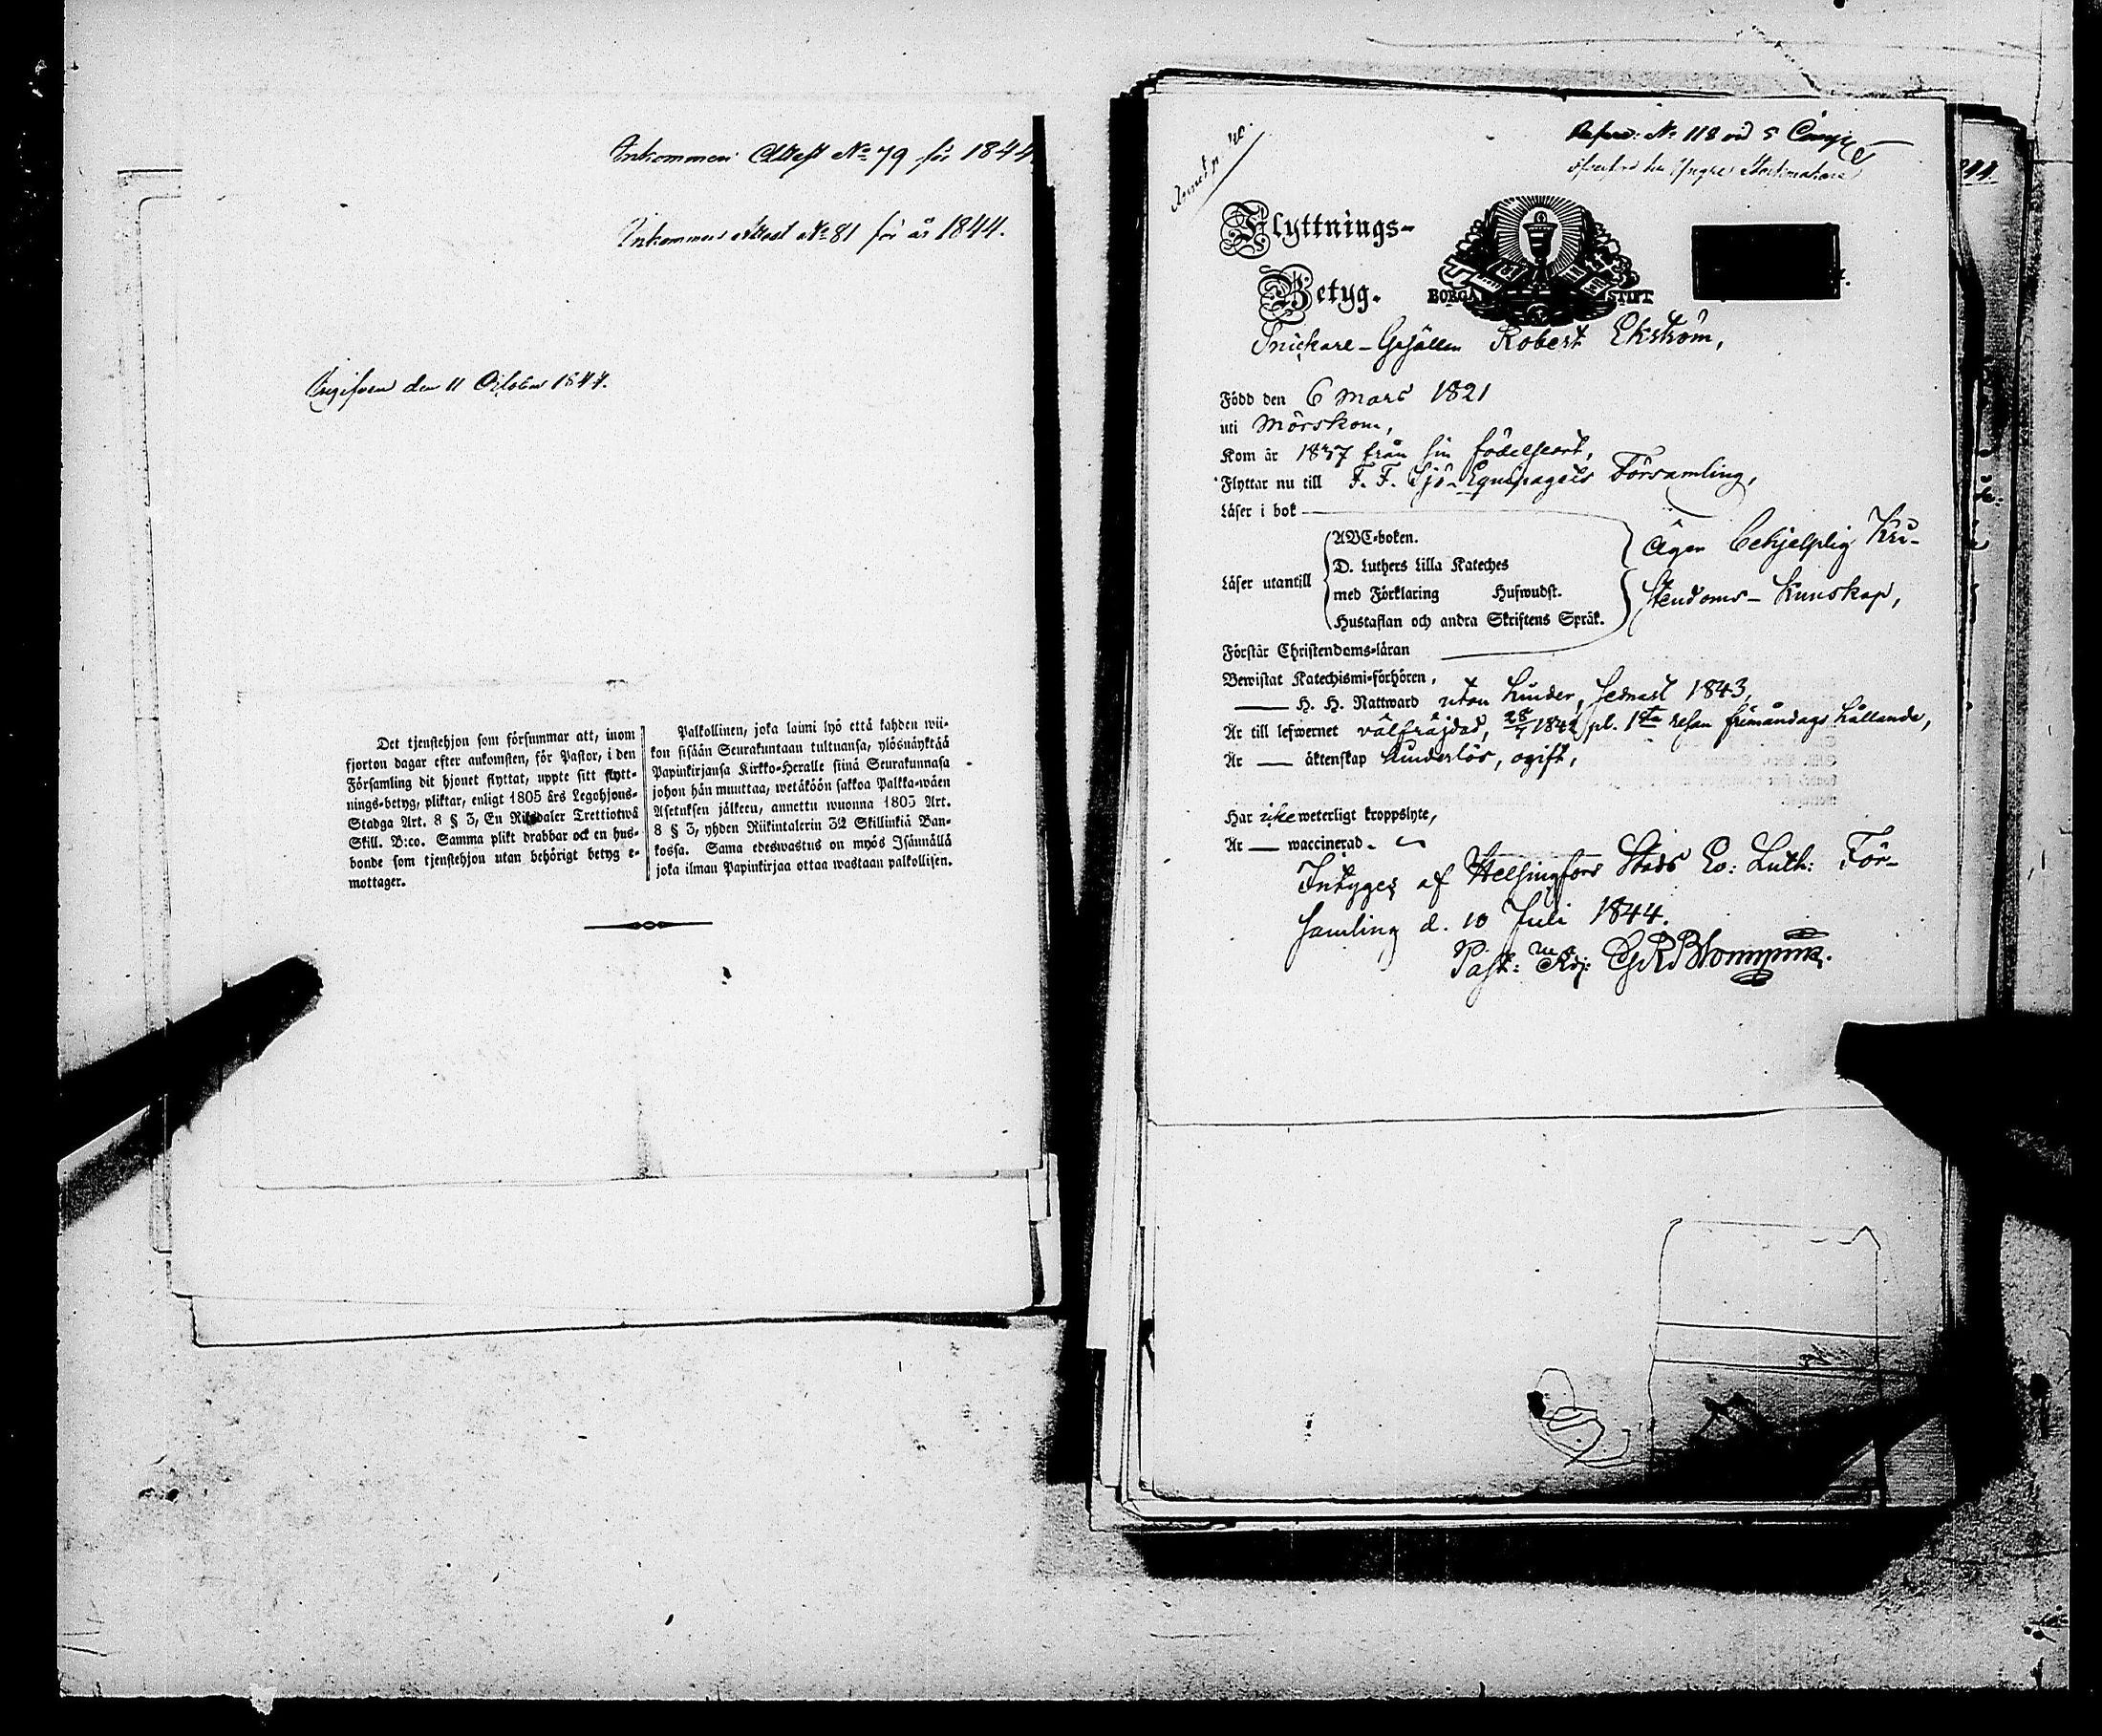 Inkommen Attest No 79 för 1844
Inkommen Attest No 81 för år 1844.
Ingifven den 11 October 1844.
Det tjenstehjon som försummar att, inom
fjorton dagar efter ankomsten, för Pastor, i den
Församling dit hjonet flyttat, uppte sitt flytt-
nings-betyg, pliktar, enligt 1805 års Legohjons-
Stadga Art. 8 § 3, En Riksdaler Trettiotwå
Skill. B:co. Samma plikt drabbar ock en hus-
bonde som tjenstehjon utan behörigt betyg e-
mottager.
Palkollinen, joka laimi lyö että kahden wii-
kon sisään Seurakuntaan tultuansa, ylösnäyktää
Papinkirjansa Kirkko-Heralle siinä Seurakunnasa
johon hän muuttaa, wetäköön sakkoa Palkka-wäen
Asetuksen jälkeen, annettu wuonna 1805 Art.
8 § 3, yhden Riikintalerin 32 Skillinkiä Ban-
kossa. Sama edeswastus on myös Isännällä
joka ilman Papinkirjaa ottaa wastaan palkollisen.
No 118 vid 5
Flyttnings-
Betyg.
BORGÅ STIFT
Snickare-Gesällen Robert Ekström,
Född den 6 Mars 1821
uti Mörskom,
Kom år 1837 från sin födelseort,
Flyttar nu till F. F. Sjö-Equipagets Församling,
Läser i bok
Läser utantill
ABC-boken.
D. Luthers Lilla Kateches
med Förklaring Hufwudst.
Hustaflan och andra Skriftens Språk.
Äger behjelplig Kri-
stendoms-Kunskap,
Förstår Christendoms-läran
Bewistat Katechismi-förhören,
H. H. Nattward utan hinder, sednast 1843,
Är till lefwernet välfräjdad, 1842 pl. 1sta resan hållande,
Är äktenskap hinderlös, ogift,
Har icke weterligt kroppslyte,
Är waccinerad.
Intygas af Helsingfors Stads Ev: Luth: För-
samling d. 10 Juli 1844.
Past: Adj: